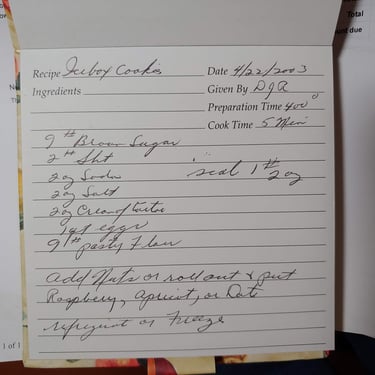 Total
unt due
Recipe Icebox Cookies Date 4/22/2003
Ingredients Given By DJR
Preparation Time 400°
Cook Time 5 Min
9 # Brown Sugar
2 # Sht
2 oz Soda scal 1 # 2 oz
2 oz Salt
2 oz Cream of tartar
eggs
9 # pasty Flour
add Nuts or roll out & put
Raspberry, Apricot, or Date
refrigirat or Freeze
1 of 1